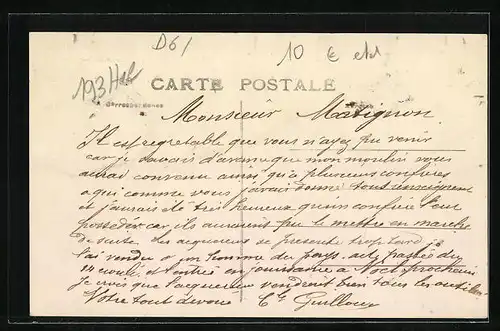 D61
10 € et1
193
CARTE POSTALE
Correspondance
Monsieur Matignon
Il est regretable que vous n'ayez pu venir
car je savais d'avance que mon moulin vous
aurait convenu ainsi qu'à plusieurs confrères
a qui comme vous j'avais donné tout renseignement
et j'aurais été très heureux qu'un confrère l'eut
possedér car ils auraient pu le mettre en marche
de suite. Les acquereurs se presente trop tard
l'ai vendu a un homme du pays acte passée du
14 et entrée en jouissance a Noel prochain
Je crois que l'acquereur vendrait bien tous les outils
Votre tout devoué Guilloux